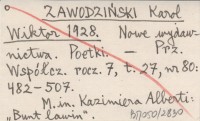 ZAWODZIŃSKI Karol
Wiktor 1928. Nowe wydaw-
nictwa. Poetki. — Prz.
Współcz. rocz. 7, t. 27, nr 80:
482-507.
M. in. Kazimiera Alberti:
"Bunt lawin".